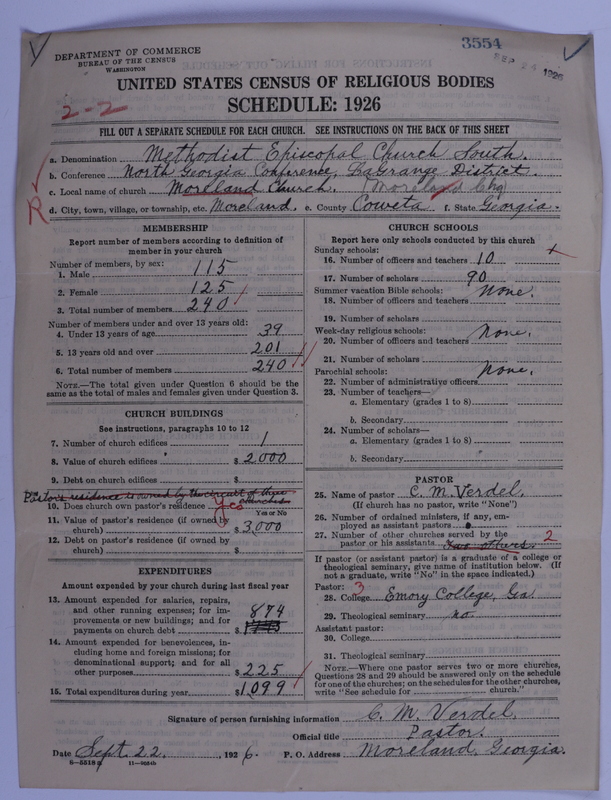 3554
SEP 24 1926
DEPARTMENT OF COMMERCE
BUREAU OF THE CENSUS
WASHINGTON
UNITED STATES CENSUS OF RELIGIOUS BODIES
SCHEDULE: 1926
2-2
FILL OUT A SEPARATE SCHEDULE FOR EACH CHURCH. SEE INSTRUCTIONS ON THE BACK OF THIS SHEET
a. Denomination Methodist Episcopal Church South.
b. Conference North Georgia Conference, LaGrange District.
c. Local name of church Moreland Church. (Moreland Chg)
R
d. City, town, village, or township, etc. Moreland. e. County Coweta f. State Georgia.
MEMBERSHIP
Report number of members according to definition of
member in your church
Number of members, by sex:
1. Male 115
2. Female 125
3. Total number of members 240
Number of members under and over 13 years old:
4. Under 13 years of age 39
5. 13 years old and over 201
6. Total number of members 240
NOTE.—The total given under Question 6 should be the
same as the total of males and females given under Question 3.
CHURCH BUILDINGS
See instructions, paragraphs 10 to 12
7. Number of church edifices 1
8. Value of church edifices $2,000
9. Debt on church edifices $
Pastor's residence is owned by the circuit of three
churches
10. Does church own pastor's residence yes
Yes or No
11. Value of pastor's residence (if owned by
church) $3,000
12. Debt on pastor's residence (if owned by
church) $
EXPENDITURES
Amount expended by your church during last fiscal year
13. Amount expended for salaries, repairs,
and other running expenses; for im-
provements or new buildings; and for
payments on church debt $ 874
14. Amount expended for benevolences, in-
cluding home and foreign missions; for
denominational support; and for all
other purposes $225
15. Total expenditures during year $1,099
CHURCH SCHOOLS
Report here only schools conducted by this church
Sunday schools:
16. Number of officers and teachers 10
17. Number of scholars 90
Summer vacation Bible schools: None.
18. Number of officers and teachers
19. Number of scholars
Week-day religious schools: None.
20. Number of officers and teachers
21. Number of scholars
Parochial schools: None.
22. Number of administrative officers
23. Number of teachers—
a. Elementary (grades 1 to 8)
b. Secondary
24. Number of scholars—
a. Elementary (grades 1 to 8)
b. Secondary
PASTOR
25. Name of pastor C. M. Verdel.
(If church has no pastor, write "None")
26. Number of ordained ministers, if any, em-
ployed as assistant pastors
27. Number of other churches served by the 2
pastor or his assistants Two others.
If pastor (or assistant pastor) is a graduate of a college or
theological seminary, give name of institution below. (If
not a graduate, write "No" in the space indicated.)
Pastor: 3
28. College Emory College, Ga.
29. Theological seminary no.
Assistant pastor:
30. College
31. Theological seminary
NOTE.—Where one pastor serves two or more churches,
Questions 28 and 29 should be answered only on the schedule
for one of the churches; on the schedules for the other churches,
write "See schedule for church."
Signature of person furnishing information C. M. Verdel.
Official title Pastor.
Date Sept. 22, 1926. P. O. Address Moreland, Georgia.